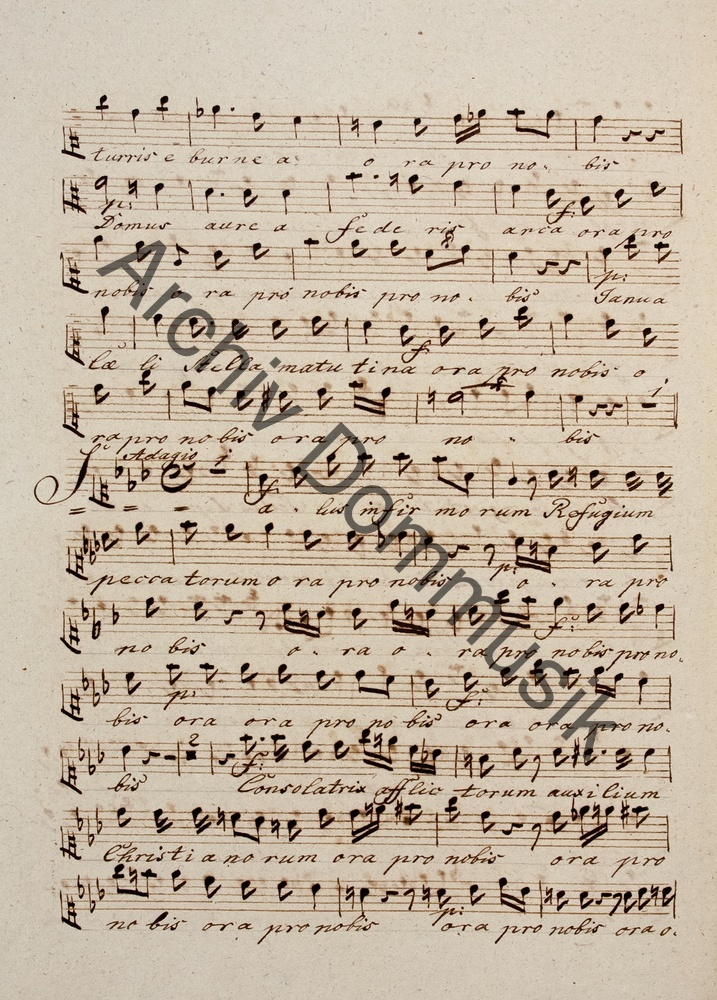 turris e burne a o ra pro no. bis
p:
Domus aure a fede ris arca ora pro
f:
nobis o ra pro nobis pro no. bis Janua
p:
Cæ li Stella matu tina ora pro nobis o
f
ra pro no bis o ra pro no " bis
1
Adagio 1
Sa. lus infir mo rum Refugium
f:
pecca torum o ra pro nobis o. ra pro
p:
no bis o. ra o. ra pro nobis pro no.
f:
bis ora ora pro no bis ora ora pro no.
p: f:
2
bis Consolatrix afflic torum auxilium
f:
Christi a no rum ora pro nobis ora pro
no bis ora pro nobis ora pro nobis ora o.
p:
Archiv Dommusik